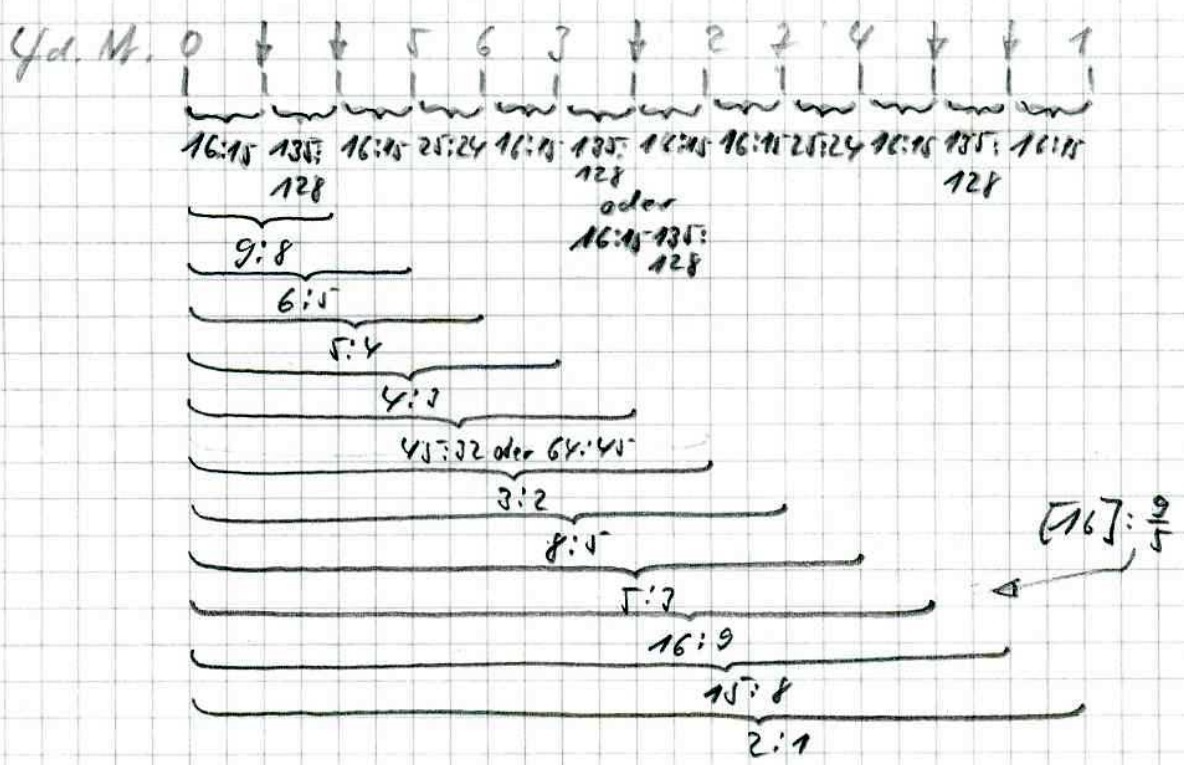 Yd. M. 0 ↓ ↓ 5 6 3 ↓ 2 7 4 ↓ ↓ 1
16:15 135: 16:15 25:24 16:15 135: 16:15 16:15 25:24 16:15 135: 16:15
128 128 128
oder
16:15 135:
128
9:8
6:5
5:4
4:3
45:32 oder 64:45
3:2
[16]: 9/5
8:5
5:3
16:9
15:8
2:1